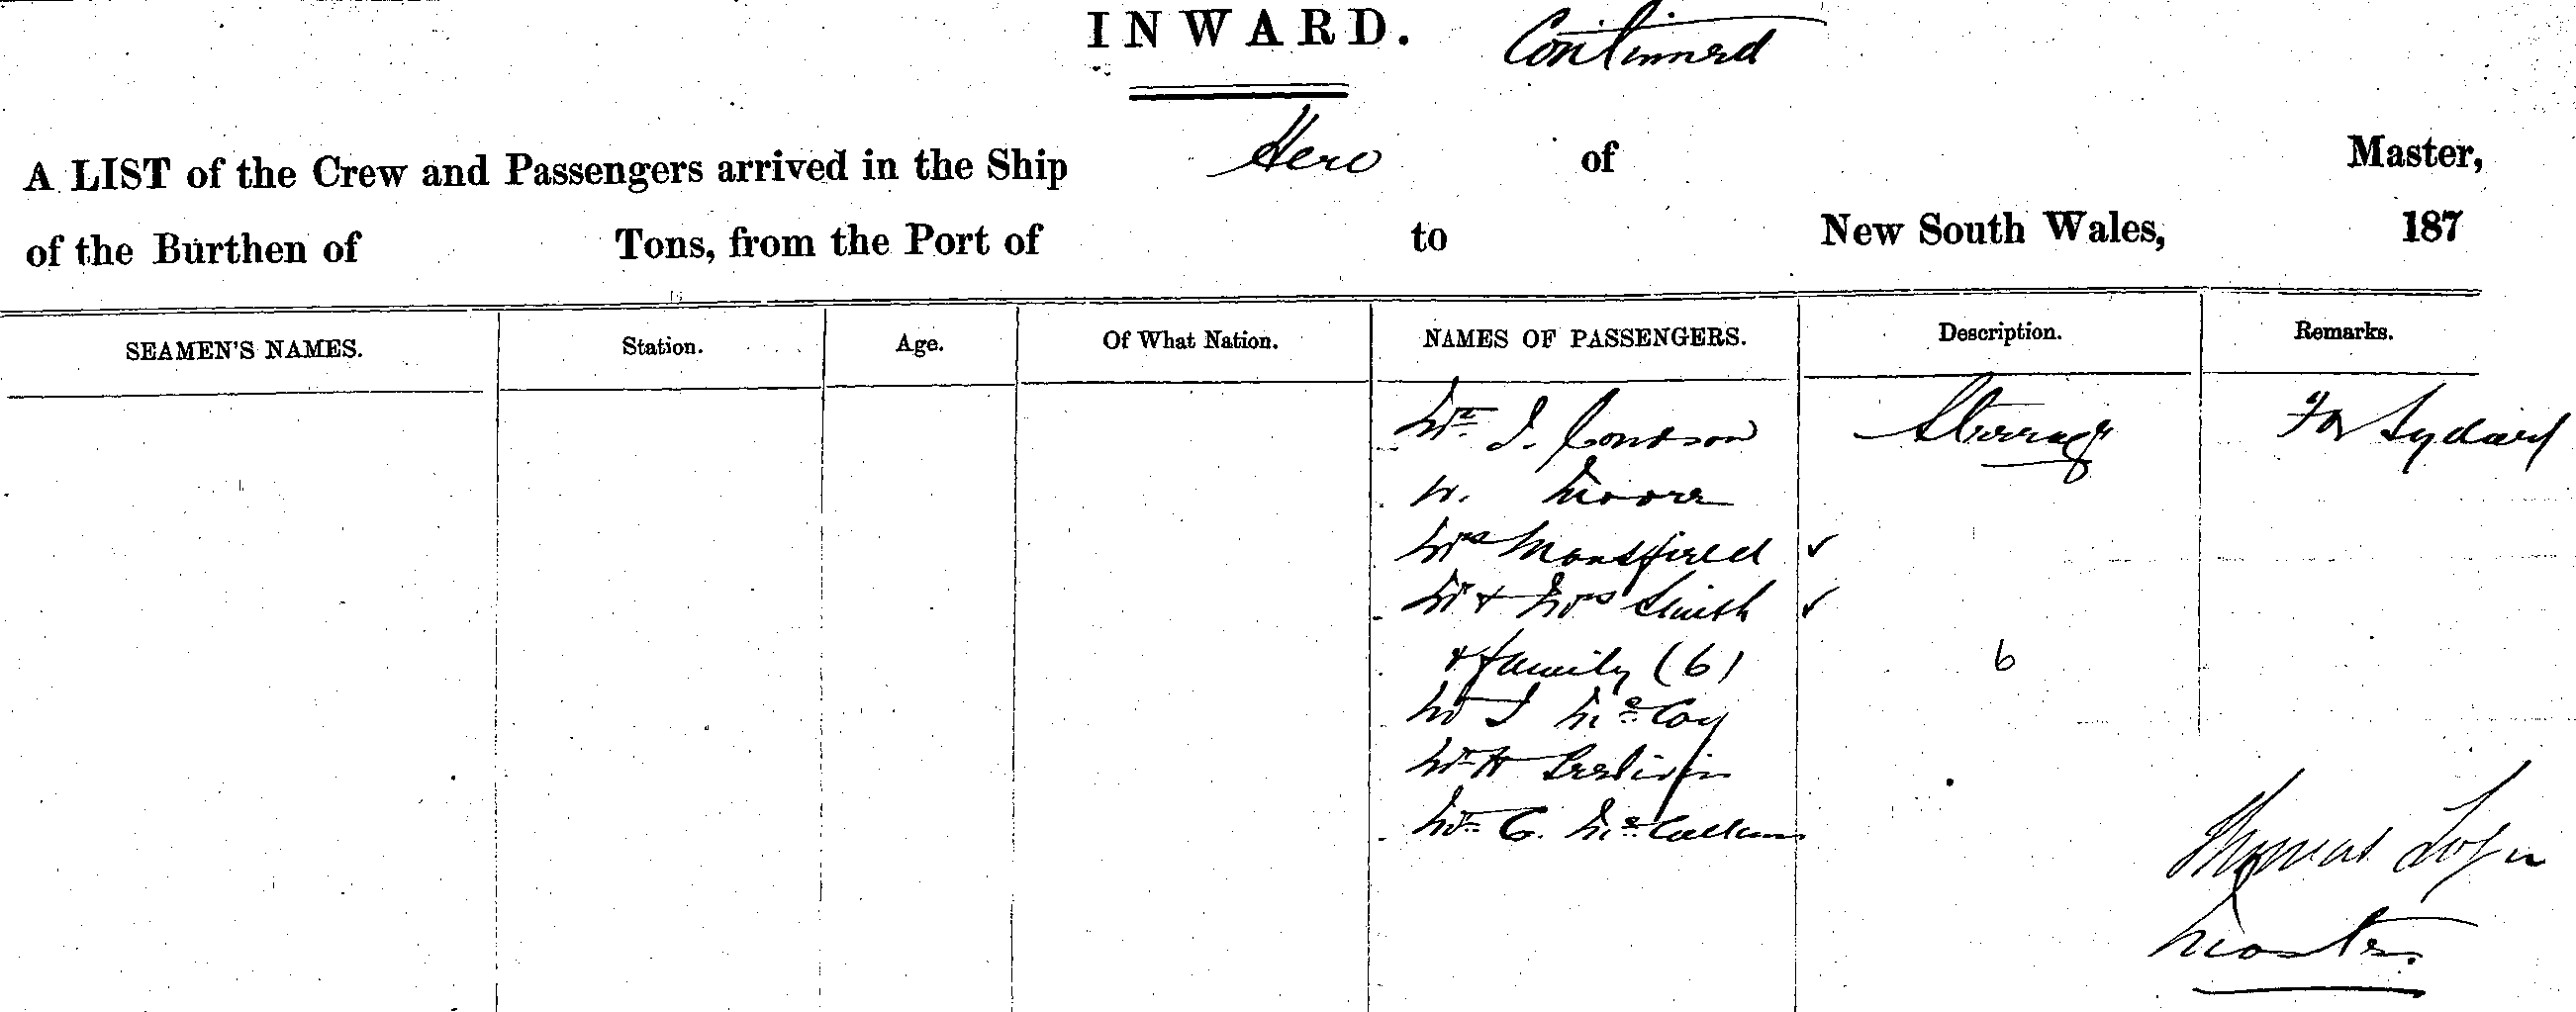 INWARD. Continued
A LIST of the Crew and Passengers arrived in the Ship Hero of Master,
of the Burthen of Tons, from the Port of to New South Wales, 187
SEAMEN'S NAMES. Station. Age. Of What Nation. NAMES OF PASSENGERS. Description. Remarks.
Mr J. Steerage For Sydney
Mr. Moore
Mrs Mansfield ✓
Mr + Mrs Smith ✓
+ family (6) 6
Mr J McCoy
Mr H
Mr C. McCallum
Thomas Logan
Master.